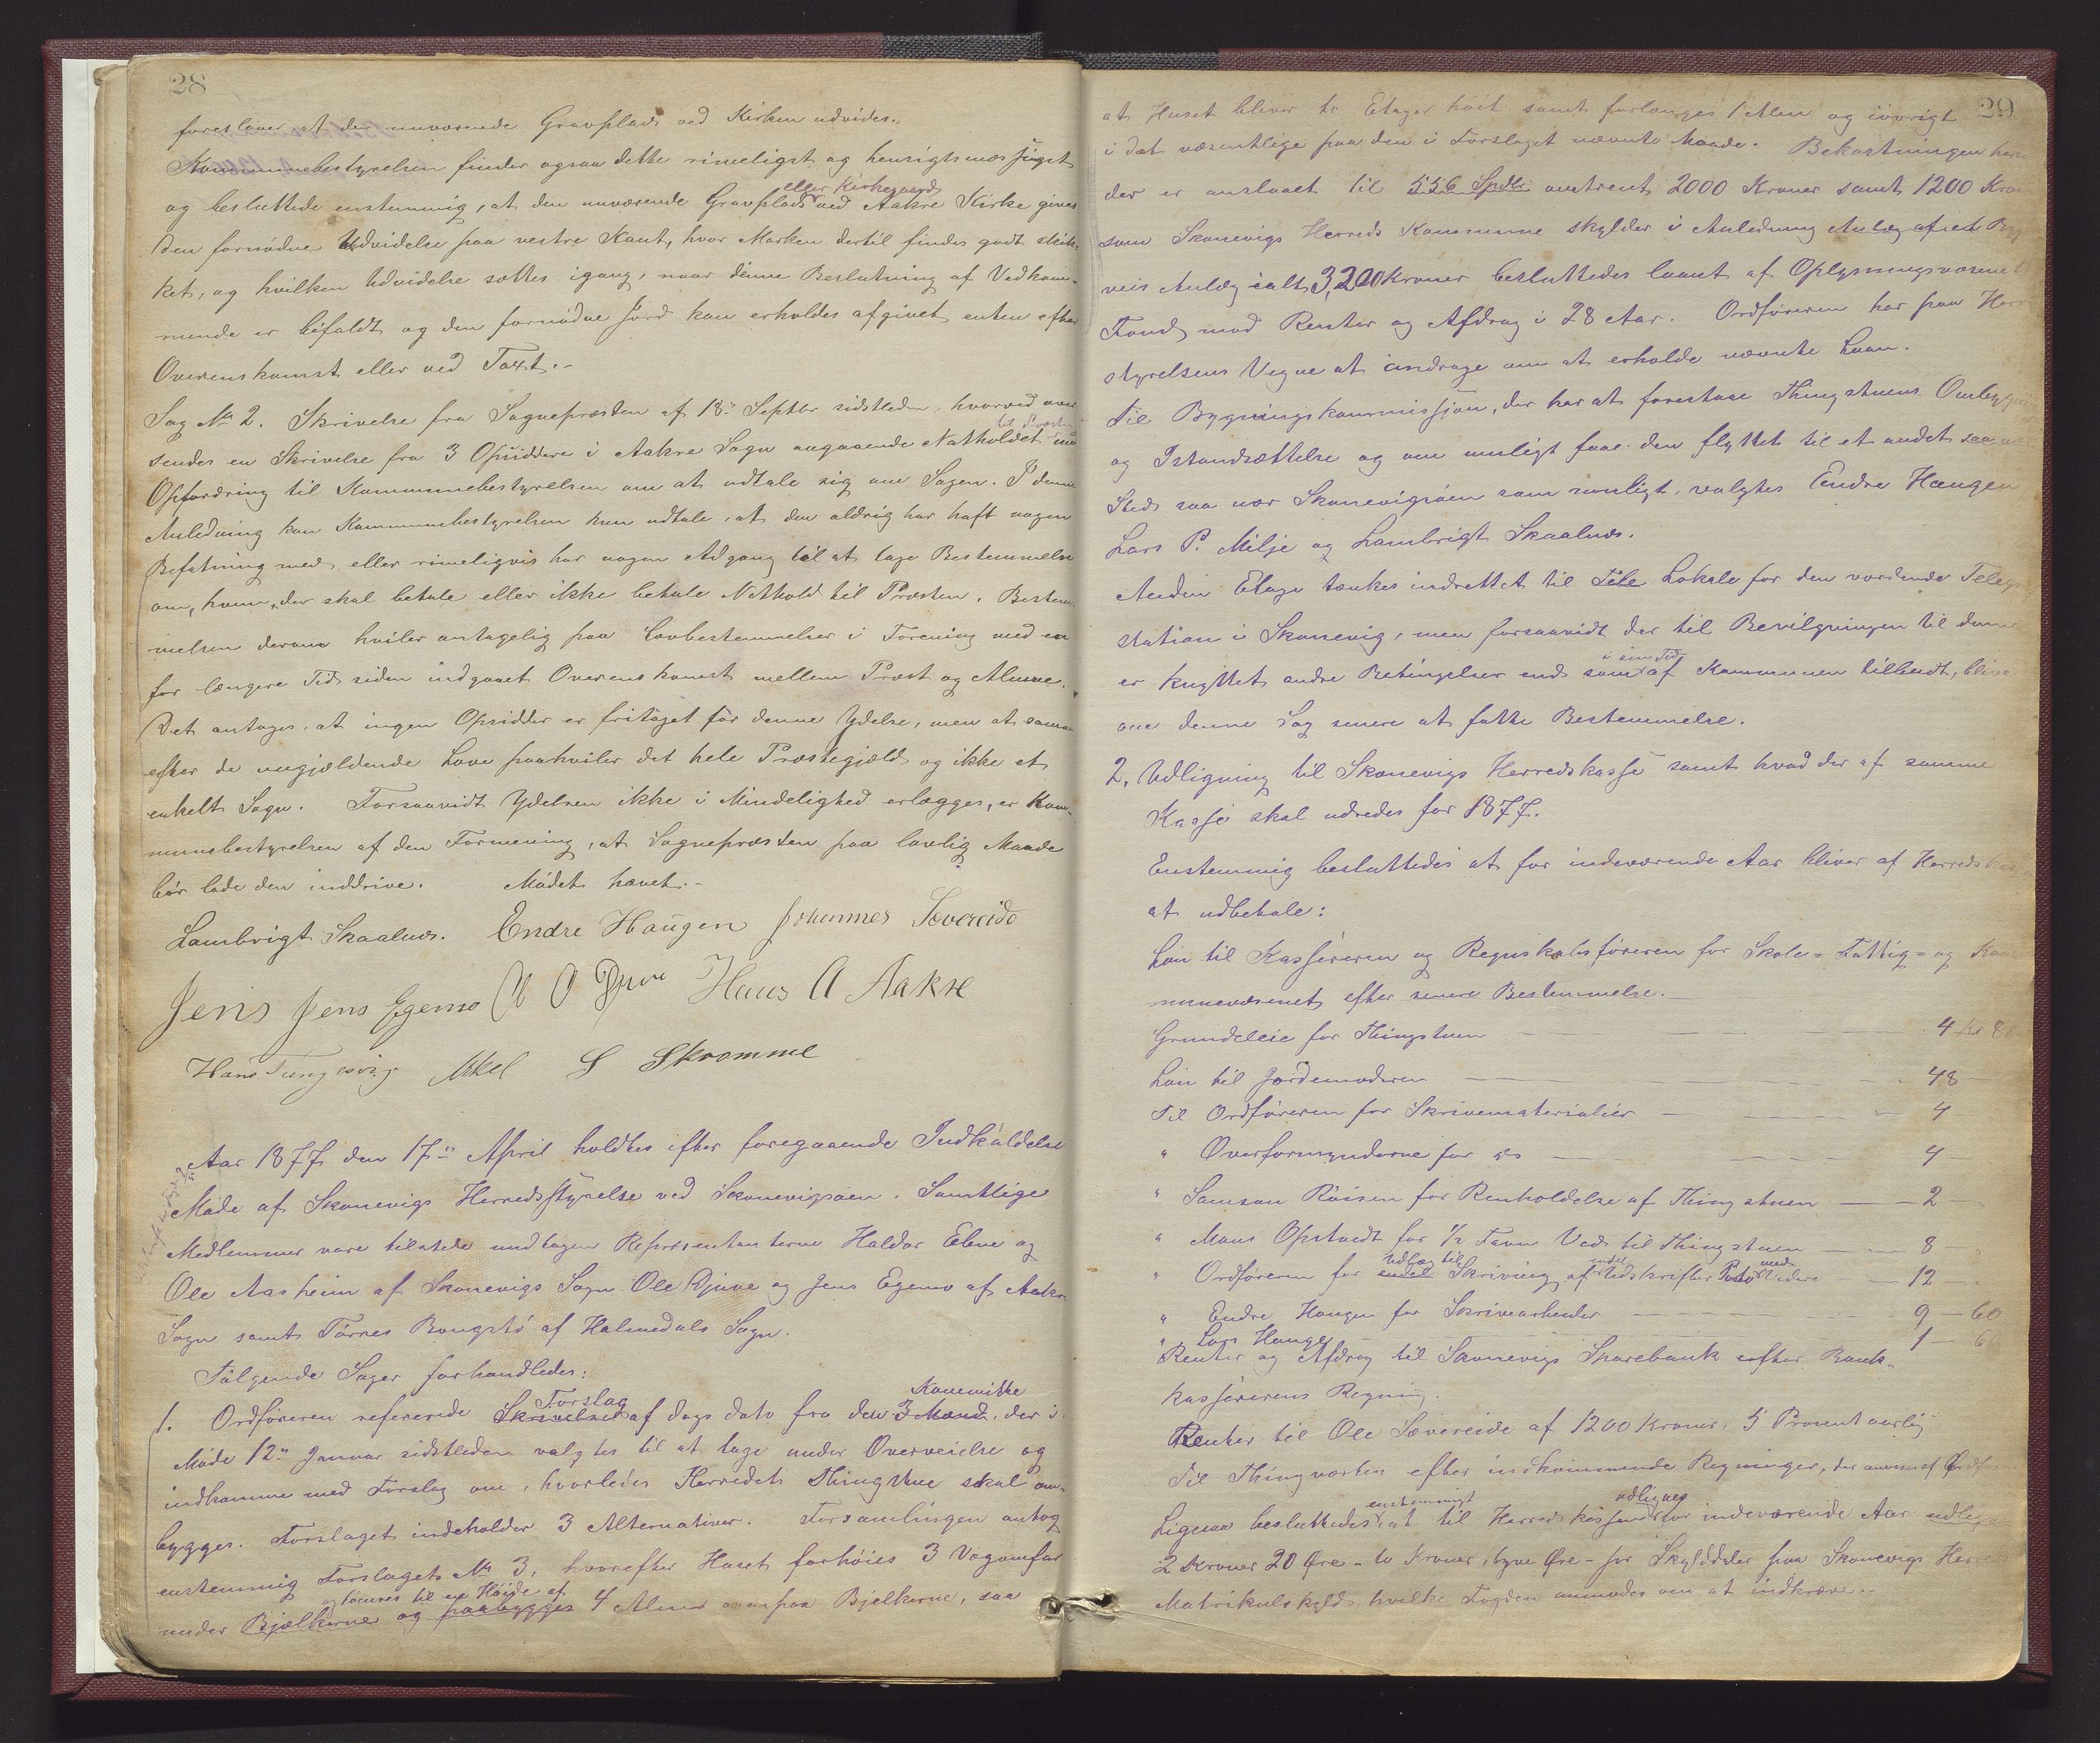 28
foreslaaer at den nuværende Gravplads ved Kirken udvides.
Kommunebestyrelsen finder ogsaa dette rimeligst og hensigtsmæssigst
eller Kirkegaard
og besluttede enstemmig, at den nuværende Gravplads ved Aakre Kirke gives
den fornødne Udvidelse paa vestre Kant, hvor Marken dertil findes godt skik-
ket, og hvilken Udvidelse sættes igang, naar denne Beslutning af Vedkom-
mende er bifaldt og den fornødne Jord kan erholdes afgivet enten efter
Overenskomst eller ved Taxt.-
Sag No 2. Skrivelse fra Sognepræsten af 18de Septbr sidstleden, hvorved over
til Præsten
sendes en Skrivelse fra 3 Opsiddere i Aakre Sogn angaaende Natholdet med
Opfordring til Kommunebestyrelsen om at udtale sig om Sagen. I denne
Anledning kan Kommunebestyrelsen kun udtale, at den aldrig har haft nogen
Befatning med, eller rimeligvis har nogen Adgang til at tage Bestemmelse
om, hvem, der skal betale eller ikke betale Nathold til Præsten. Bestem-
melsen derom hviler antagelig paa Lovbestemmelser i Forening med en
for længere Tid siden indgaaet Overenskomst mellem Præst og Almue.
Det antages, at ingen Opsidder er fritaget for denne Ydelse, men at samme
efter de nugjældende Love paahviler det hele Præstegjæld og ikke et
enkelt Sogn. Forsaavidt Ydelsen ikke i Mindelighed erlægges, er Kom-
munebestyrelsen af den Formening, at Sognepræsten paa lovlig Maade
bør lade den inddrive. Mødet hævet.-
Lambrigt Skaalnæs. Endre Haugen Johannes Sævereide
Jens Jens Egemo O O Djuve Hans A Aakre
Hans Tungesvig Mkel S Skromme
Aar 1877 den 17de April holdtes efter foregaaende Indkaldelse
Møde af Skonevigs Herredsstyrelse ved Skonevigsøen. Samtlige
Medlemmer vare tilstede undtagen Repræsentanterne Haldor Ebne og
Ole Aasheim af Skonevigs Sogn Ole Djuve og Jens Egemo af Aakre
Sogn samt Tørres Bougstø af Holmedals Sogn.
Følgende Sager forhandledes:
Forslag Kommitte
1. Ordføreren refererede Skrivelse af Dags dato fra den 3 Mænd, der i
Møde 12te Januar sidstleden valgtes til at tage under Overveielse og
indkomme med Forslag om, hvorledes Herredets Thingstue skal om-
bygges. Forslaget indeholder 3 Alternativer. Forsamlingen antog
enstemmig Forslagets No 3, hvorefter Huset forhøies 3 Vaganfar
og tømres til en Høide af
under Bjælkerne og paabygges 4 Alner ovenpaa Bjelkerne, saa
29
at Huset bliver to Etager høit samt forlænges 1 Alen og iøvrigt
i det væsentlige paa den i Forslaget nævnte Maade. Bekostningen her
der er anslaaet til 556 Spdlr omtrent 2000 Kroner samt 1200 Kron
som Skonevigs Herreds Kommune skylder i Anledning Anlæg af et Byg
veis Anlæg ialt 3,200 Kroner besluttedes laant af Oplysningsvæsenets
Fond mod Renter og Afdrag i 28 Aar. Ordføreren har paa Her
styrelsens Vegne at andrage om at erholde nævnte Laan.
Til Bygningskommission, der har at forestaae Thingstuens Ombygning
og Istandsættelse og om muligt faae den flyttet til et andet
Sted saa nær Skonevigsøen som muligt, valgtes Endre Haugen
Lars P. Milje og Lambrigt Skaalnæs.
Anden Etage tænkes indrettet til Tele Lokale for den vordende Telegr
station i Skonevig, men forsaavidt der til Bevilgningen til denne
i sin Tid
er knyttet andre Betingelser end som af Kommunen tilbudt, bliver
om denne Sag senere at fatte Bestemmelse.
2. Udligning til Skonevigs Herredskasse samt hvad der af samme
Kasse skal udredes for 1877.
Enstemmig besluttedes at for indeværende Aar bliver af Herredskas
at udbetale:
Løn til Kasséreren og Regnskabsføreren for Skole- Fattig- og Kom
munevæsenet efter senere Bestemmelse.
Grundeleie for Thingstuen 4 Kr 8
Løn til Jordemoderen 48
Til Ordføreren for Skrivematerialier 4
" Overformynderne for ds 4
" Samson Røisen for Renholdelse af Thingstuen 2
" Mons Opstvedt for 1/2 Favn Ved til Thingstuen 8
Udlæg til endel med
" Ordføreren for endel Skrivning af Udskrifter Porto Videre 12
" Endre Haugen for Skrivearbeider 9 60
" Lars Hauge 1 6
Renter og Afdrag til Skonevigs Sparebank efter Bank-
kassérerens Regning.
Renter til Ole Sævereide af 1200 Kroner, 5 Procent aarlig
Til Thingværten efter indkommende Regninger, der anvises af Ordfør
enstemmigt udlignes
Ligesaa besluttedes, at til Herredskassen for indeværende Aar udlignes
2 Kroner 20 Øre - to Kroner, tyve Øre - pr Skylddaler paa Skonevigs Her
Matrikulskyld, hvilke Fogden anmodes om at indkræve.-